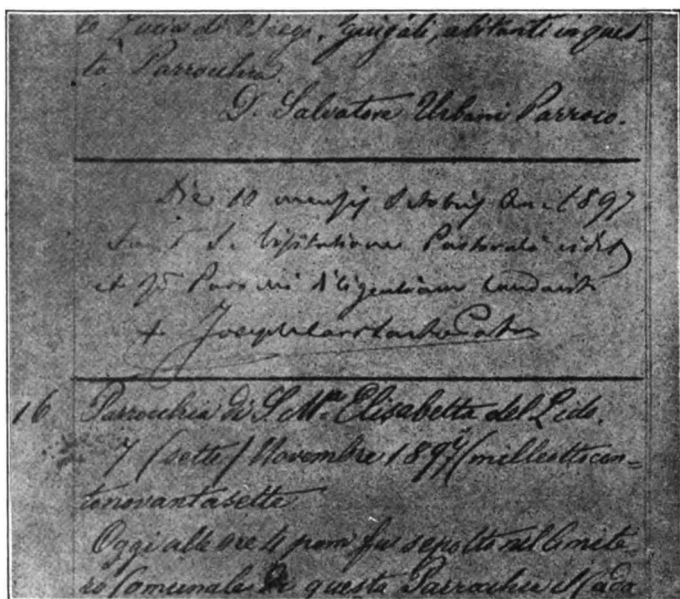 Lucia di Diego. Guigali, abitanti in ques-
ta Parrocchia.
D. Salvatore Urbani Parroco.
Die 10 mensis Octobris An. 1897
S. Visitatione Pastorali vidit
et Parrochi diligentiam laudavit
+ Joseph
16 Parrocchia di S. Mª Elisabetta del Lido.
7 (sette) Novembre 1897 (milleottocen-
tonovantasette
Oggi alle ore 4 pom. fu sepolto nel Cimite-
ro Comunale di questa Parrocchia il cada